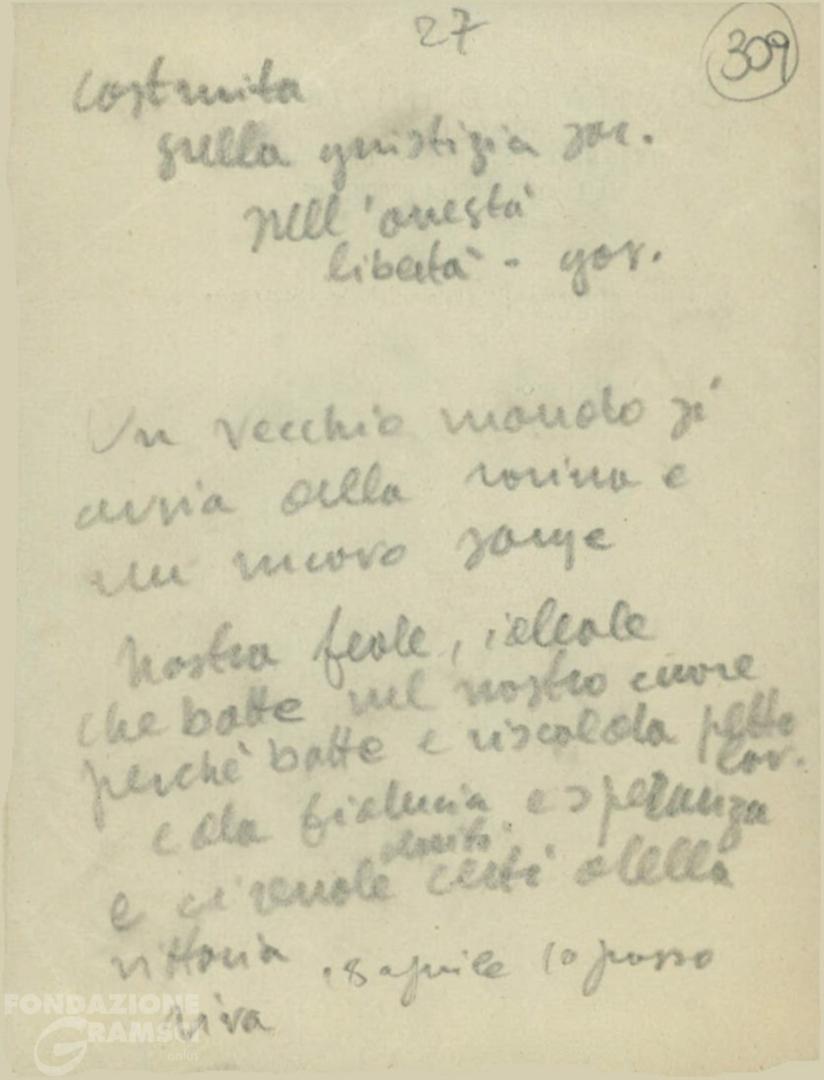 27
309
costruita
sulla giustizia soc.
nell'onestà
libertà - gov.
Un vecchio mondo si
avvia della rovina e
un nuovo sorge
Nostra fede, ideale
che batte nel nostro cuore
perchè batte e riscalda petto
lav.
e dà fiducia e speranza
e ci rende certi della
vittoria 18 aprile 1o passo
viva
FONDAZIONE
GRAMSCI
onlus